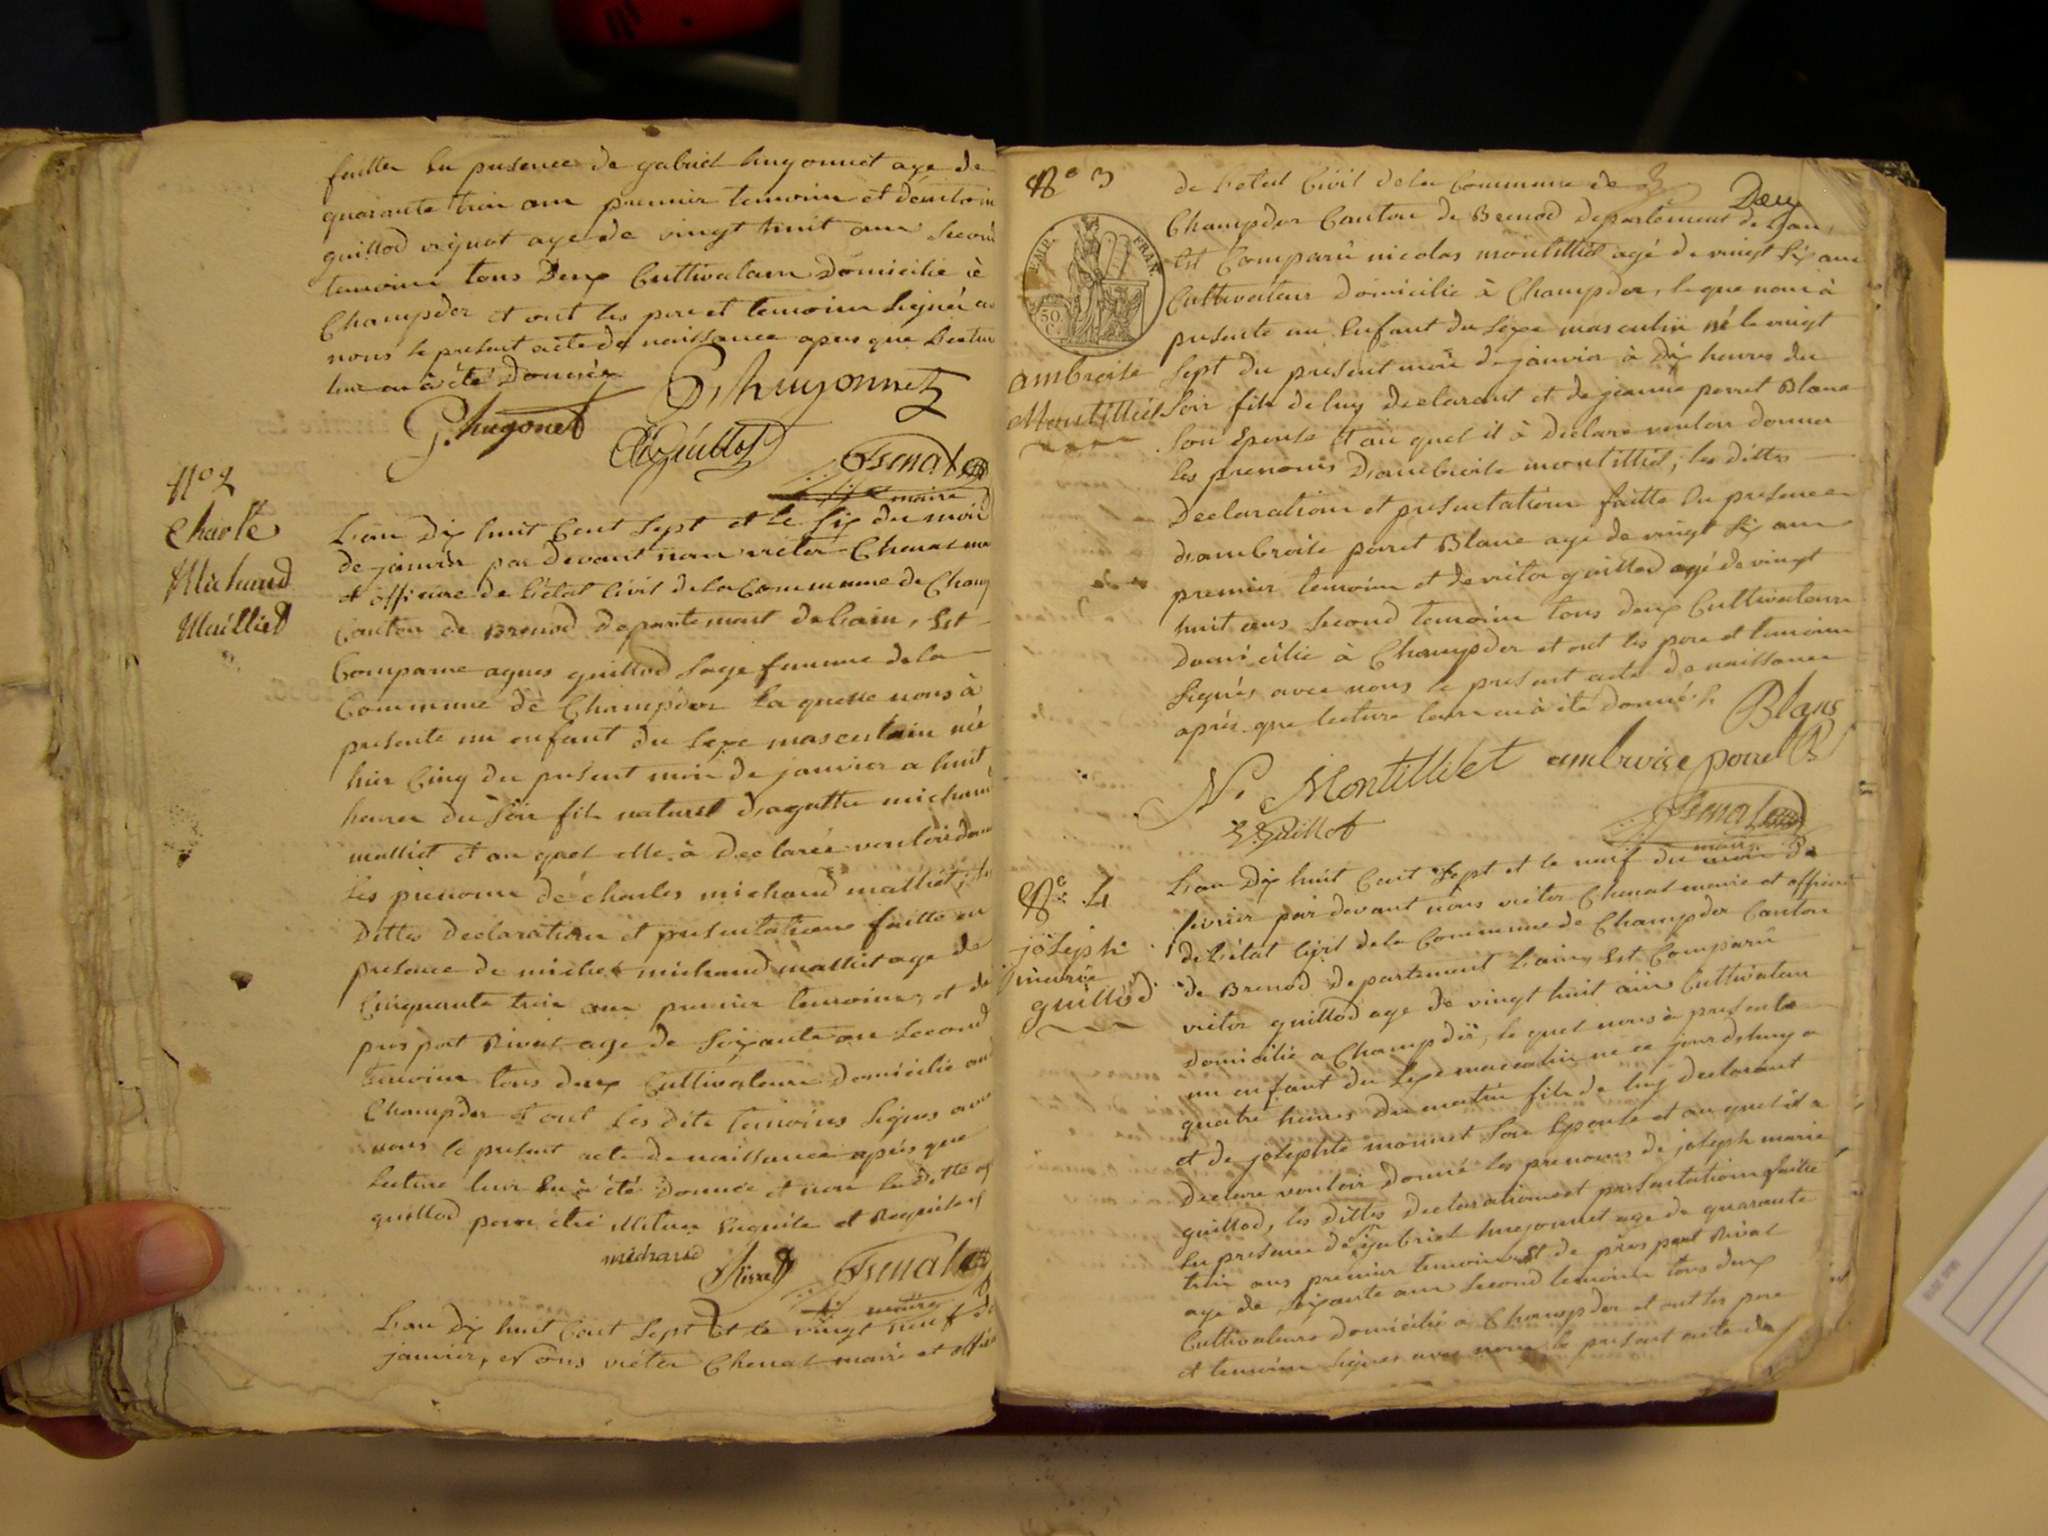 faittes en presence de gabriel hugonnet age de
quarante troix ans premier temoin et
guillod vignat age de vingt huit ans second
temoins tous Deux Cultivateurs Domicilié à
Champdor et ont les pere et temoins signés
nous le present acte de naissance apres que Lecture
leur en à été Donnée
G. hugonet
hugonnet
Guillot
maire
N° 2
Charle
Michaud
Mailliet
L'an Dix huit Cent sept et le six du mois
de janvier par devant nous victor Chenat
et officier de l'état Civil de la Commune de
Canton de Brenod Departement de Lain, est
Comparue agnes guillod sage femme de la
Commune de Champdor La quelle nous à
presenté un enfant du sexe masculin né
hier Cinq du present mois de janvier a huit
heures du soir fils naturel d'agathe michaud
malliet et au quel elle à declaréé vouloir
les prenoms de charles michaud malliet, les
Dittes declaration et presentations faitte en
presence de michel michaud malliet age de
Cinquante troix ans premier temoins, et de
prosport Rivat age de soixante ans second
temoins tous deux Cultivateurs domicilié
Champdor et ont les dits temoins signes avec
nous le present acte de naissance après que
Lecture leur en à été donnée et non la ditte
guillod pour etre illitree Enquise et Requise
michaud
maire
L'an Dix huit Cent sept et le vingt neuf
janvier, Nous victor Chenat maire et
N° 3
Deux
EMP.
FRAN.
50
C.
ambroise
Montilliet
de l'etat Civil de la Commune de
Champdor Canton de Brenod Departement de
est Comparû nicolas montilliet agé de vingt six ans
Cultivateur domicilié à Champdor, le que nous à
presenté un Enfant du sexe masculin né le vingt
sept du present mois de janvier à dix heures du
soir fils de luy declarant et de jeanne perret Blanc
son Epouse et au quel il à declaré vouloir donner
les prenoms D'ambroise montilliet, les dittes
Declarations et presentations faitte En presence
d'ambroise perret Blanc age de vingt six ans
premier temoins et de victor guillod agé de vingt
huit ans second temoins tous deux Cultivateurs
Domicilié à Champdor et ont les pere et temoins
signés avec nous le present acte de naissance
après que lecture leur en à été donné
Blanc
N. Montilliet
ambroise perret
V. Guillot
maire
N° 4
joseph
marie
guillod
L'an Dix huit Cent sept et le neuf du mois de
fevrier par devant nous victor Chenat maire et officier
de l'état Civil de la Commune de Champdor Canton
de Brenod departement Lain, est Comparû
victor guillod age de vingt huit ans Cultivateur
domicilié a Champdor, le quel nous à presenté
un enfant du sexe masculin né ce jourdhuy a
quatre heures du matin fils de luy declarant
et de josephte monnet son Epouse et au quel il a
declaré vouloir donné les prenoms de joseph marie
guillod, les dittes declaration et presentations faitte
En presence de gabriel hugonnet age de quarante
troix ans premier temoins et de prosport Rivat
age de soixante ans second temoins tous deux
Cultivateurs domicilié a Champdor et ont les pere
et temoins signes avec nous le present acte de